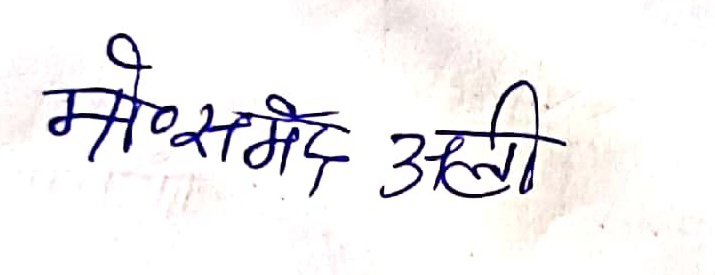 मो० समेद अली